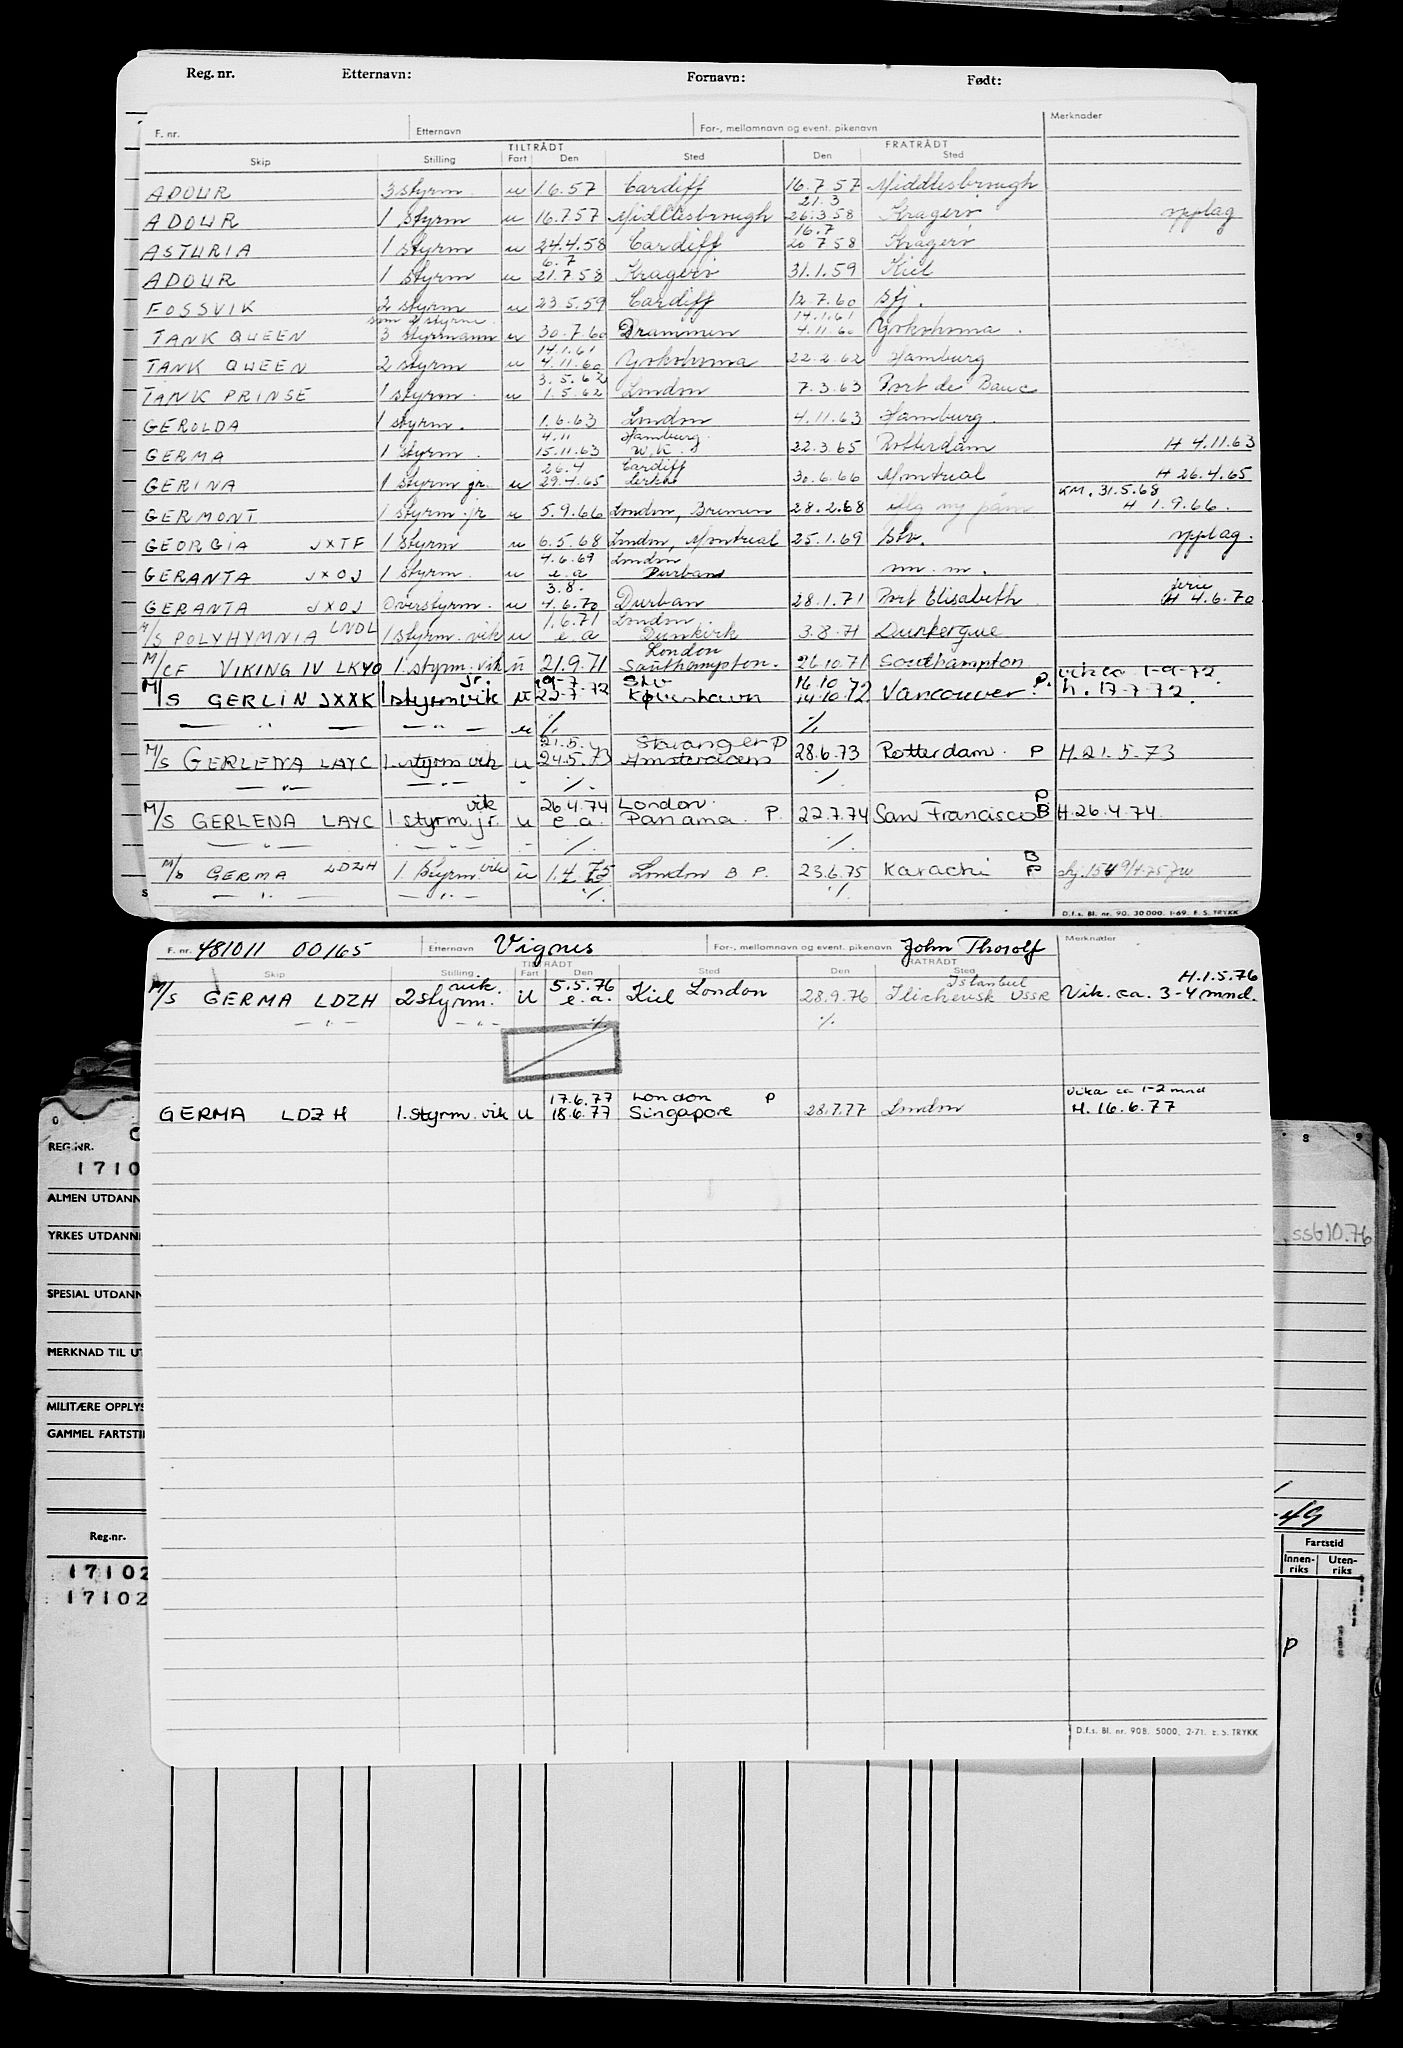 Reg. nr. Etternavn: Fornavn: Født:
F. nr. Etternavn For-, mellomnavn og event. pikenavn Merknader
TILTRÅDT FRATRÅDT
Skip Stilling Fart Den Sted Den Sted
ADOUR 3 styrm. u 1.6.57 Cardiff 16.7.57 Middlesbrough
21.3
ADOUR 1 styrm u 16.7.57 Middlesbrough 26.3.58 Kragerö opplag
16.7
ASTURIA 1 styrm u 24.4.58 Cardiff 20 7 58 Kragerö
6.7
ADOUR 1 styrm u 21.7.58 Kragerö 31.1.59 Kiel
FOSSVIK 2 styrm u 23.5.59 Cardiff 12.7.60 Sfj.
som 2 styrm. 14.1.61
TANK QUEEN 3 styrmann u 30.7.60 Drammen 4.11.60 Yokohoma.
14.1.61
TANK QUEEN 2 styrm u 4.11.60 Yokohoma 22.2.62 Hamburg
3.5.62
TANK PRINSE 1 styrm. u 1.5.62 London 7.3.63 Port de Bouc
GEROLDA 1 styrm. 1.6.63 London 4.11.63 Hamburg.
4.11 Hamburg.
GERMA 1 styrm. 15.11.63 W.K. 22.3.65 Rotterdam H 4.11.63
26.4 Cardiff
GERINA 1 styrm jr. u 29.4.65 30.6.66 Montreal H 26.4.65
KM. 31.5.68
GERMONT 1 styrm. jr u 5.9.66 London, Bremen 28.2.68 H 1.9.66.
GEORGIA JXTF 1 styrm u 6.5.68 London, Montreal 25.1.69 Stv. opplag.
4.6.69 London
GERANTA JXOJ 1 styrm. u e.a Durban m.m.
3.8. ferie
GERANTA JXOJ Overstyrm. u 4.6.70 Durban 28.1.71 Port Elisabeth H 4.6.70
1.6.71 London
M/S POLYHYMNIA LNDL 1 styrm. vik u e.a Dunkirk 3.8.71 Dunkerque
London
M/CF VIKING IV LKYO 1. styrm. vik u 21.9.71 Southampton. 26.10.71 Southampton
jr. 19-7 Stv 16.10 72 P. vik ca. 1-9-72.
M/S GERLIN JXXK 1 styrm vik u 22-7-72 København 14.10.72 Vancouver. h. 17-7-72.
— " — — " — u ./. ./.
21.5. Stavanger P
M/S GERLENA LAYC 1. styrm vik u 24.5.73 Amsterdam 28.6.73 Rotterdam. P H. 21.5.73
— " — — " — ./. ./.
vik 26.4.74 London. P
M/S GERLENA LAYC 1 styrm. jr. u e.a. Panama. P. 22.7.74 San Francisco B H. 26.4.74
— " — — " — ./. ./.
B
M/S GERMA LDZH 1 styrm. vik u 1.4.75 London B P. 23.6.75 Karachi P
— " — — " — ./. ./.
D.f.s. Bl. nr. 90. 30 000. 1-69. E. S. TRYKK
F. nr. 481011 00165 Etternavn Vignes For-, mellomnavn og event. pikenavn John Thorolf Merknader
TILTRÅDT FRATRÅDT
Skip Stilling Fart Den Sted Den Sted
vik. 5.5.76 Istanbul H.1.5.76
M/S GERMA LDZH 2 styrm. U e.a. Kiel London 28.9.76 Ilichevsk USSR Vik. ca. 3-4 mnd.
— " — — " — ./. ./.
17.6.77 London P vikar ca 1-2 mnd
GERMA LDZH 1. styrm. vik u 18.6.77 Singapore 28.7.77 London H. 16.6.77
D.f.s. Bl. nr. 90B. 5000. 2-71. E. S. TRYKK
0 8 9
REG.NR.
1710
ALMEN UTDANN
YRKES UTDANN
SPESIAL UTDANN
MERKNAD TIL UT
MILITÆRE OPPLYS
GAMMEL FARTSTI
ss610.76
-49
Reg.nr. Fartstid
Innen-riks Uten-riks
17102
17102
P